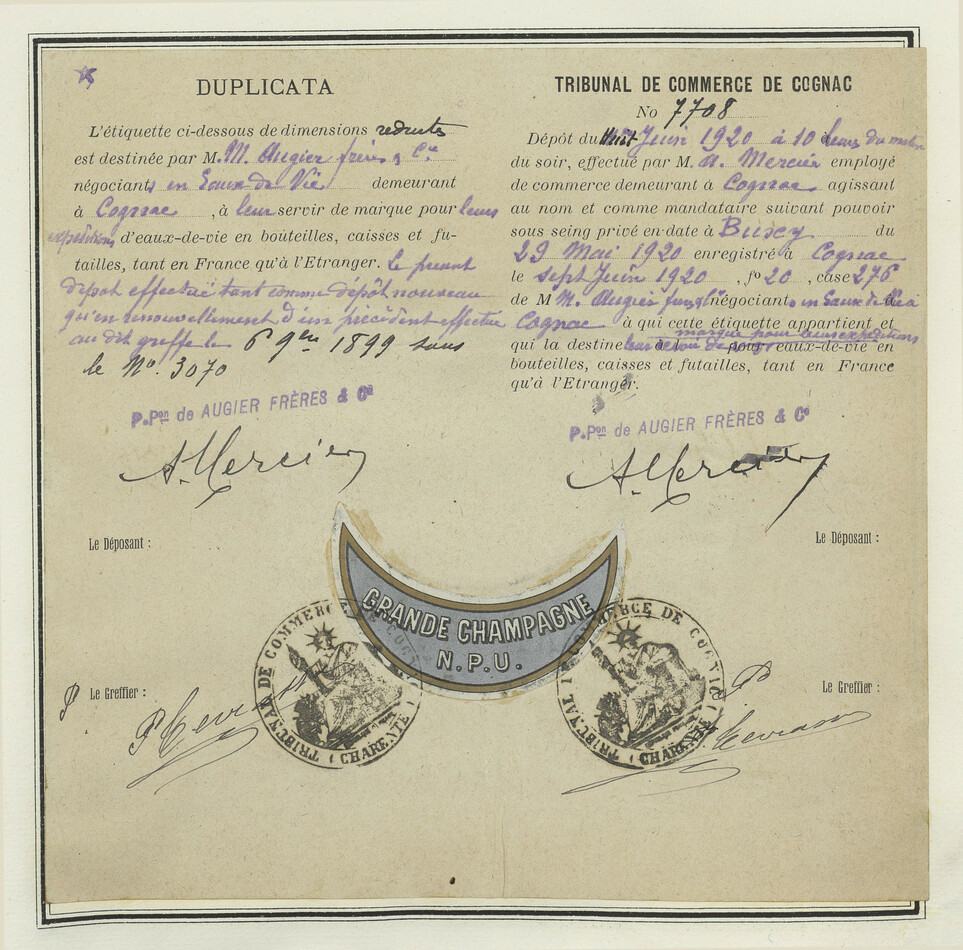 DUPLICATA
L'étiquette ci-dessous de dimensions réduites
est destinée par M. M. Augier frères & Cie
négociants en Eaux de Vie demeurant
à Cognac, à leur servir de marque pour leurs
expéditions d'eaux-de-vie en bouteilles, caisses et fu-
tailles, tant en France qu'à l'Etranger. Le présent
dépôt effectué tant comme dépôt nouveau
qu'en renouvellement d'un précédent effectué
au dit greffe le 6 9bre 1899 sous
le No. 3070
P.Pon de AUGIER FRÈRES & Co
A. Mercier
Le Déposant :
Le Greffier :
TRIBUNAL DE COMMERCE DE COGNAC
No 7708
Dépôt du huit Juin 1920 à 10 heures du matin
du soir, effectué par M. A. Mercier employé
de commerce demeurant à Cognac agissant
au nom et comme mandataire suivant pouvoir
sous seing privé en date à du
29 Mai 1920 enregistré à Cognac
le sept Juin 1920, fo 20, case 276
de M M. Augier frères négociants en Eaux de Vie à
Cognac à qui cette étiquette appartient et
marque pour leurs expéditions
qui la destine eaux-de-vie en
bouteilles, caisses et futailles, tant en France
qu'à l'Etranger.
P.Pon de AUGIER FRÈRES & Co
A. Mercier
Le Déposant :
Le Greffier :
GRANDE CHAMPAGNE
N.P.U.
TRIBUNAL DE COMMERCE DE COGNAC
(CHARENTE)
TRIBUNAL DE COMMERCE DE COGNAC
(CHARENTE)